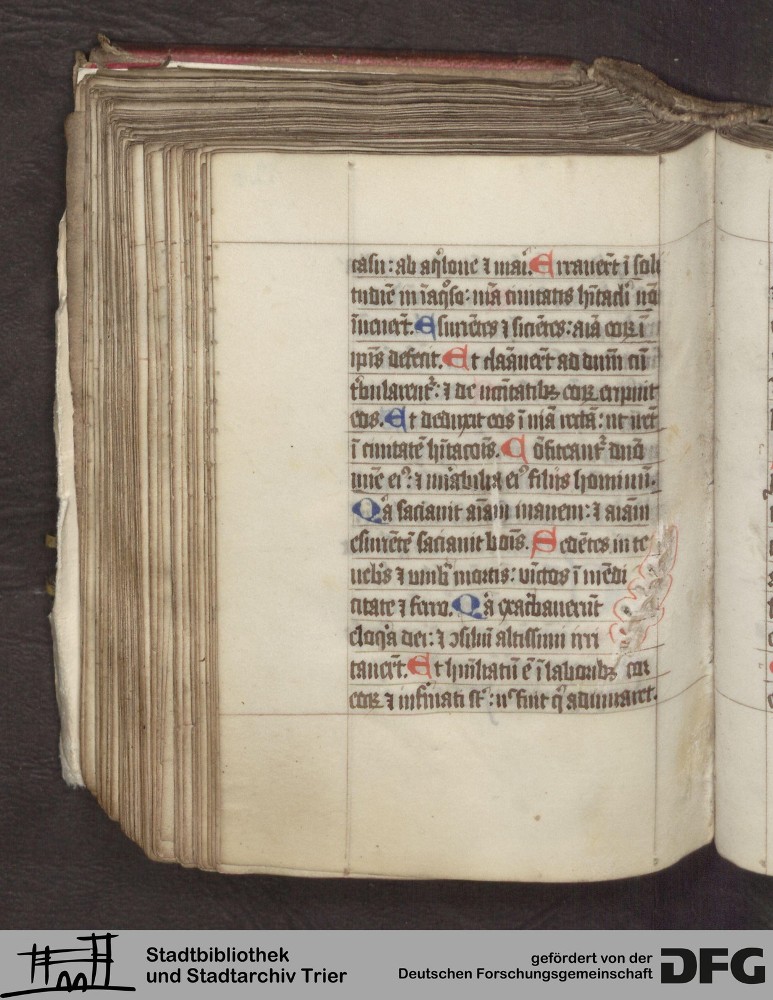 casu : ab aq̊lone ⁊ mai. Erraueꝛ̄t ī soli
tudīe in īaq̊so : uiā ciuitatis hītacl̓i nō
īueneꝛ̄t. Esuriētes ⁊ siciētes : aīa eoꝝ ī
ip̄is defecit. Et clamāueꝛ̄t ad dn̄m cū
t̓bularent᷑ : ⁊ de nccītatibꝫ eoꝝ eripuit
eos. Et deduxit eos ī uiā rectā : ut irēt
ī ciuitatē hītacōis. Cōfiteant᷑ dn̄o
mīe eiꝰ : ⁊ mirabilia eiꝰ filiis hominū.
Qͣa saciauit aīam inanem : ⁊ aīam
esuriētē saciauit bōis. Sedētes in te
nebris ⁊ umb̾ mortis : uīctos ī mēdi
citate ⁊ ferro. Qͣa exac̓bauerūt
eloq̓a dei : ⁊ ↄsiliū altissimi irri
taueꝛ̄t. Et hūiliatū ē ī laboribꝫ cor
eoꝝ ⁊ infirmati st̄ : n̄ fuit q̓ adiuuaret.
Stadtbibliothek
und Stadtarchiv Trier
gefördert von der
Deutschen Forschungsgemeinschaft
DFG